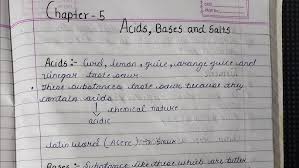 Chapter - 5
Acids, Bases and Salts
Acids :- Curd, lemon, juice, orange juice and
vinegar taste sour
• These substances taste sour because they
contain acids
↓ chemical nature
acidic
Latin word (Acere) → Sour
Bases :- Substance like these which are bitter